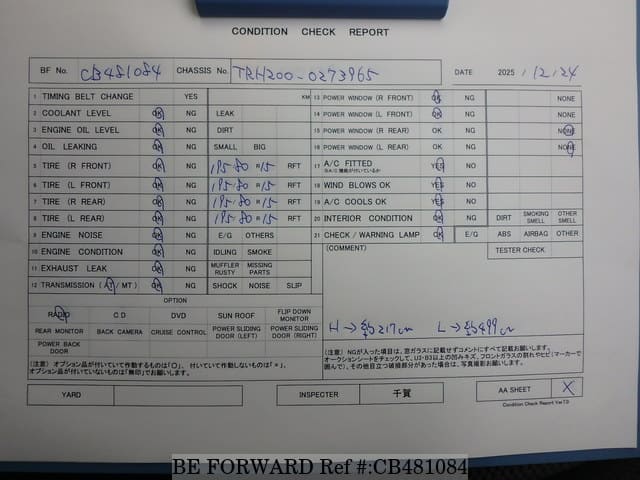 CONDITION CHECK REPORT
BF No. CB481084 CHASSIS No. TRH200-0273965 DATE 2025 / 12 / 24
1 TIMING BELT CHANGE YES KM 13 POWER WINDOW (R FRONT) OK NG NONE
2 COOLANT LEVEL OK NG LEAK 14 POWER WINDOW (L FRONT) OK NG NONE
3 ENGINE OIL LEVEL OK NG DIRT 15 POWER WINDOW (R REAR) OK NG NONE
4 OIL LEAKING OK NG SMALL BIG 16 POWER WINDOW (L REAR) OK NG NONE
5 TIRE (R FRONT) OK NG 195/80 R 15 RFT 17 A/C FITTED YES NO
6 TIRE (L FRONT) OK NG 195/80 R 15 RFT 18 WIND BLOWS OK YES NO
7 TIRE (R REAR) OK NG 195/80 R 15 RFT 19 A/C COOLS OK YES NO
8 TIRE (L REAR) OK NG 195/80 R 15 RFT 20 INTERIOR CONDITION OK NG DIRT SMOKING SMELL OTHER SMELL
9 ENGINE NOISE OK NG E/G OTHERS 21 CHECK / WARNING LAMP OK NG E/G ABS AIRBAG OTHER
10 ENGINE CONDITION OK NG IDLING SMOKE (COMMENT) TESTER CHECK
11 EXHAUST LEAK OK NG MUFFLER RUSTY MISSING PARTS
12 TRANSMISSION (AT / MT) OK NG SHOCK NOISE SLIP
OPTION
RADIO CD DVD SUN ROOF FLIP DOWN MONITOR
REAR MONITOR BACK CAMERA CRUISE CONTROL POWER SLIDING DOOR (LEFT) POWER SLIDING DOOR (RIGHT)
H → 約217cm L → 約499cm
POWER BACK DOOR
(注意) オプション品が付いていて作動するものは「〇」、付いていて作動しないものは「×」、
オプション品が付いていないものは「無印」でお願いします。
(注意) NGが入った項目は、窓ガラスに記載せずコメントにすべて記載お願いします。
オークションシートをチェックして、U3・B3以上の凹みキズ、フロントガラスの割れやヒビ(マーカーで
囲んで)、その他目立つ破損部分があった場合は、写真撮影お願いします。
YARD INSPECTER 千賀 AA SHEET X
Condition Check Report Ver7.0
BE FORWARD Ref #:CB481084